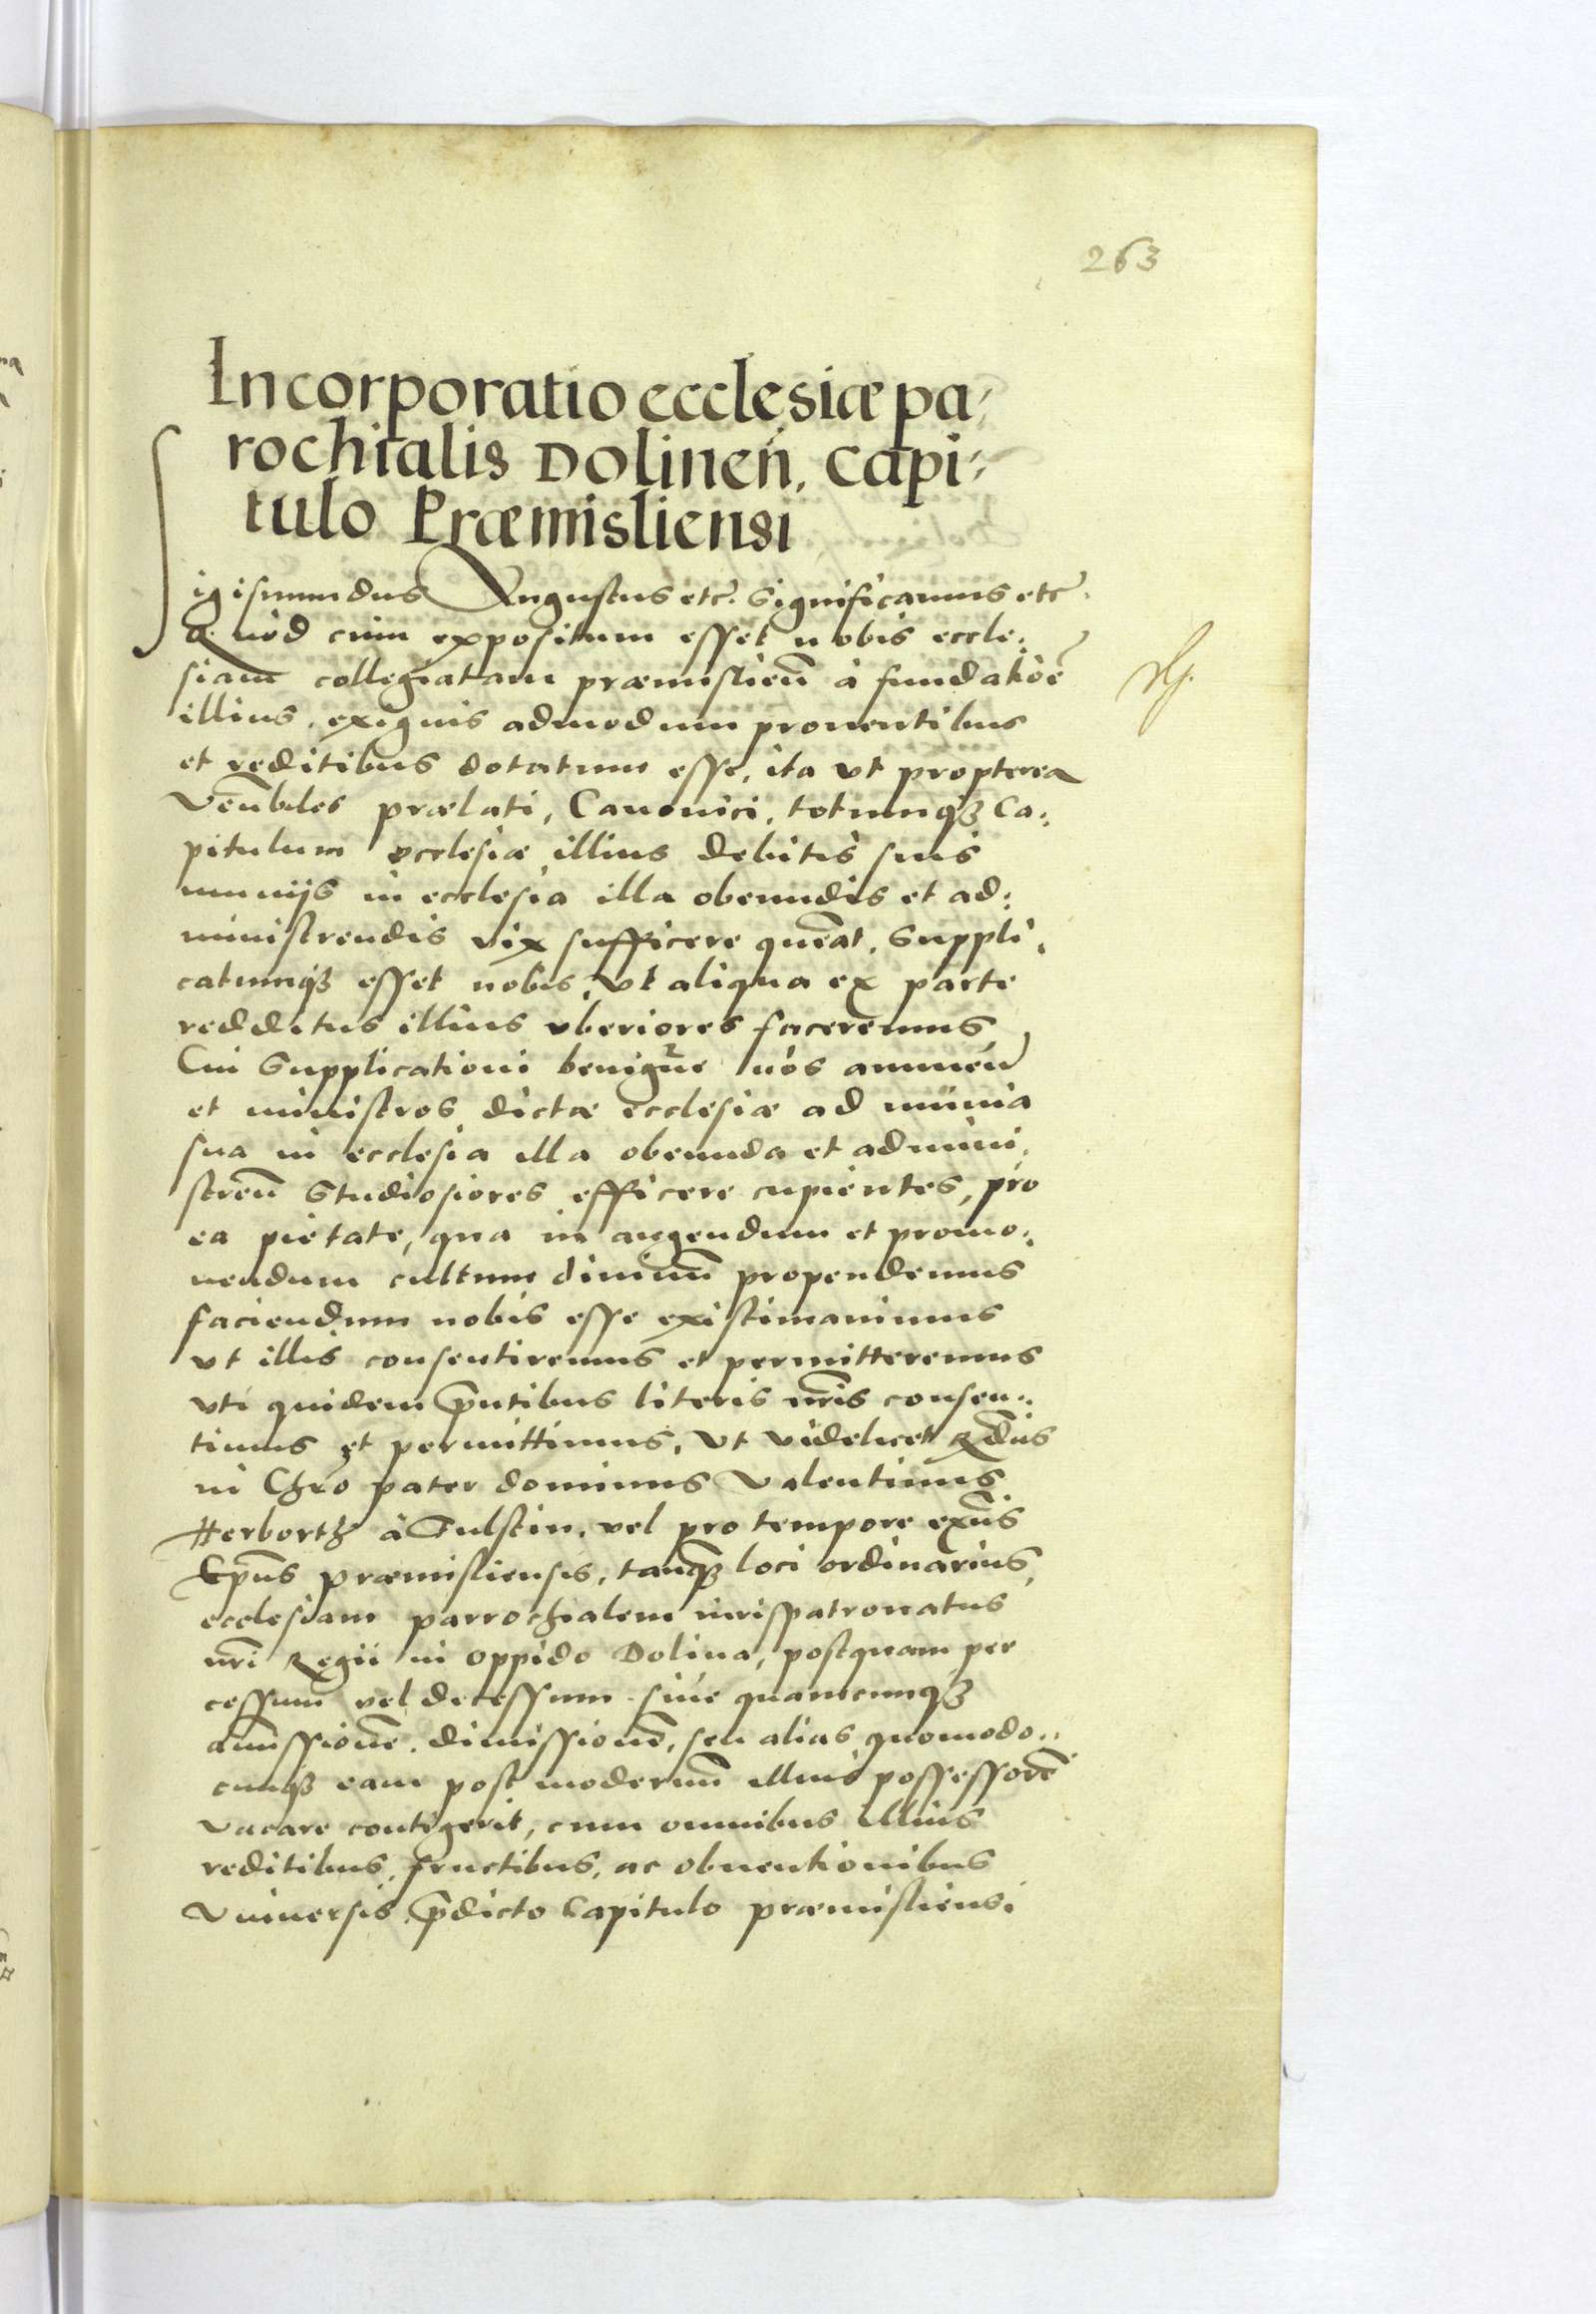 263
Incorporatio ecclesiæ pa⸗
rochialis Dolineñ. Capi⸗
tulo Præmisliensi
Sigismundus Augustus etc̃. Significamus etc̃.
Quod cum expositum esset nobis eccle:
siam collegiatam præmislieñ à fundatiõe
illius, exiguis admodum prouentibus
et reditibus dotatum esse, ita vt propterea
Veñbiles prælati, Canonici, totumqȝ Ca:
pitulum ecclesiæ illius debitis suis
munijs in ecclesia illa obeundis et ad:
ministrendis vix sufficere queãt. Suppli:
catumqȝ esset nobis, vt aliqua ex parte
redditus illius vberiores faceremus
Cui Supplicationi benigne nos annueñ
et ministros dictæ ecclesiæ ad munia
sua in ecclesia illa obeunda et admini:
streñ Studiosiores efficere cupientes, pro
ea pietate, qua in augendum et promo:
uendum cultum diuinũ propendemus
faciendum nobis esse existimauimus
vt illis consentiremus et permitteremus
vti quidem p̃ntibus literis nr̃is consen:
timus et permittimus, Vt videlicet Rd̃us
in Chr̃o pater dominus Valentinus
Herborth à Fulstin, vel pro tempore exñs
Ep̃us præmisliensis, tanqȝ loci ordinarius,
ecclesiam parrochialem iurispatronatus
nr̃i Regii in oppido Dolina, postquam per
cessum vel decessum siue quamcunqȝ
amissionẽ, dimissionẽ, seu alias quomodo:
cunqȝ eam post modernũ illius possessorẽ
vacare contigerit, cum omnibus illius
reditibus, fructibus, ac obuentionibus
vniuersis p̃dicto Capitulo præmisliensi